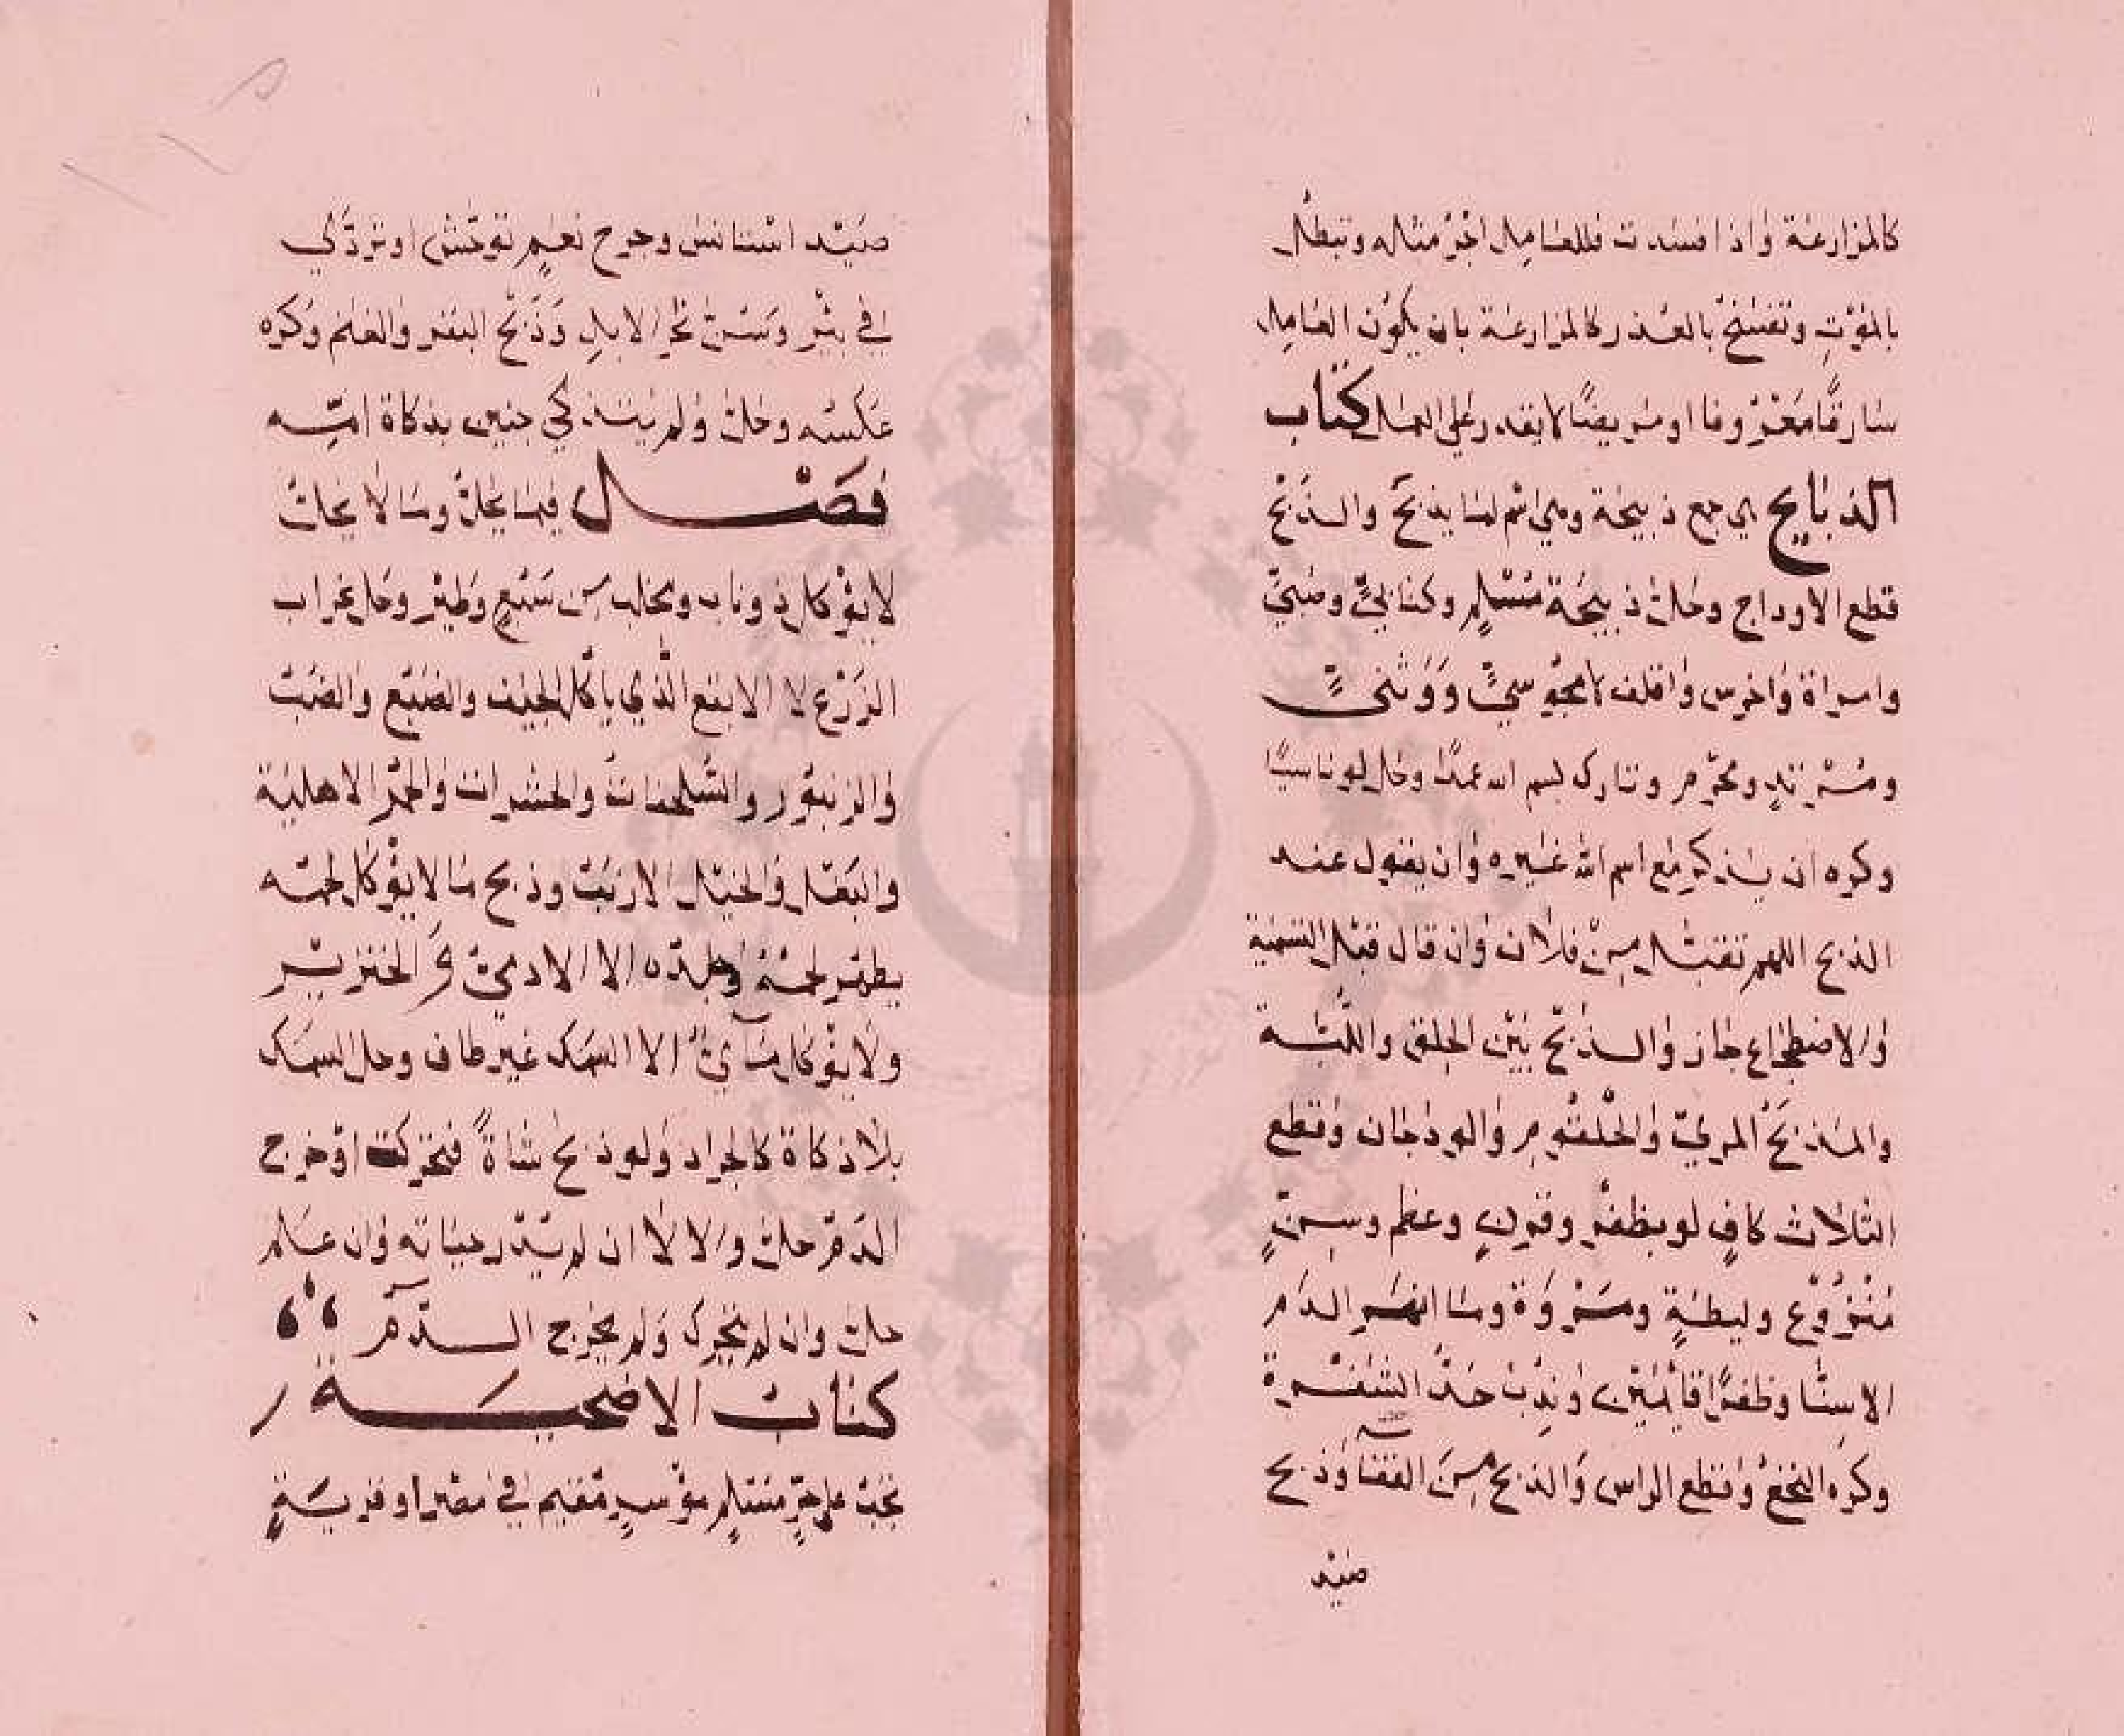 كالمزارعة واذا فسدت فللعامل اجر مثله وتبطل
بالموت وتفسخ بالعذر كالمزارعة بان يكون العامل
سارقا معروفا او مريضا لا يقدر على العمل كتاب
الذبايح هي جمع ذبيحة وهي اسم لما يذبح والذبح
قطع الاوداج وحل ذبيحة مسلم وكتابي وصبي
وامراة واخرس واقلف لا مجوسي ووثني
ومرتد ومحرم وتارك بسم الله عمدا وحل لو ناسيا
وكره ان يذكر مع اسم الله غيره وان يقول عند
الذبح اللهم تقبل من فلان وان قال قبل التسمية
والاضطجاع جاز والذبح بين الحلق واللبة
والمذبح المري والحلقوم والودجان وقطع
الثلاث كاف لو بظفر وقرن وعظم وسن
منزوع وليطة ومروة وما انهر الدم
الا سنا وظفرا قائمين وندب حد الشفرة
وكره النخع وقطع الراس والذبح من القفا وذبح
صيد
صيد استانس وجرح نعم توحش او تردى
في بئر وسن نحر الابل وذبح البقر والغنم وكره
عكسه وحل ولم يتذكى جنين بذكاة امه
فصل فيما يحل وما لا يحل
لا يؤكل ذو ناب ومخلب من سبع وطير وحل غراب
الزرع لا الابقع الذي ياكل الجيف والضبع والضب
والزنبور والسلحفات والحشرات والحمر الاهلية
والبغل والخيل الارنب وذبح ما لا يؤكل لحمه
يطهر لحمه وجلده الا الادمي و الخنزير
ولا يؤكل مآئي الا السمك غير طاف وحل السمك
بلا ذكاة كالجراد ولو ذبح شاة فتحركت او خرج
الدم حل والا لا ان لم يدر حياته وان علم
حل وان لم يتحرك ولم يخرج الدم
كتاب الاضحية
تجب على حر مسلم موسر مقيم في مصر او قرية